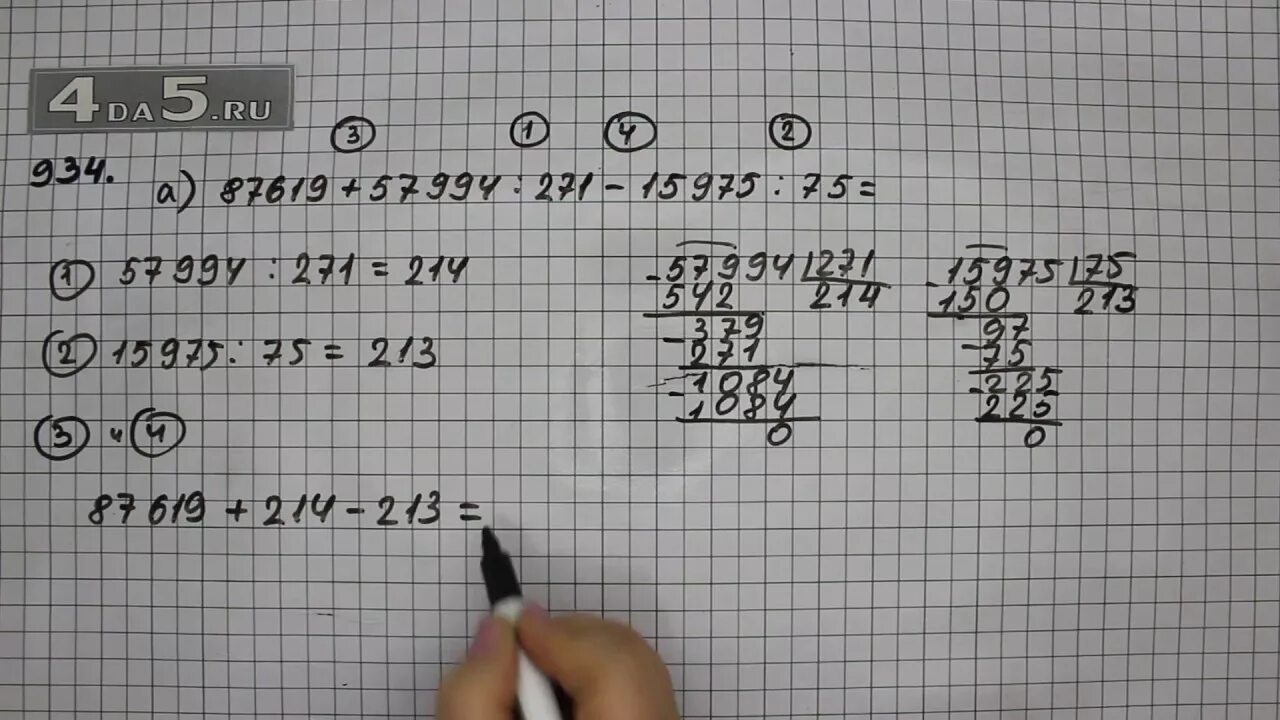 4DA5.RU
③ ① ④ ②
934. а) 87619 + 57994 : 271 - 15975 : 75 =
① 57994 : 271 = 214
② 15975 : 75 = 213
③ и ④
87619 + 214 - 213 =
-57994 271
542 214
-379
271
-1084
1084
0
-15975 75
150 213
-97
75
-225
225
0